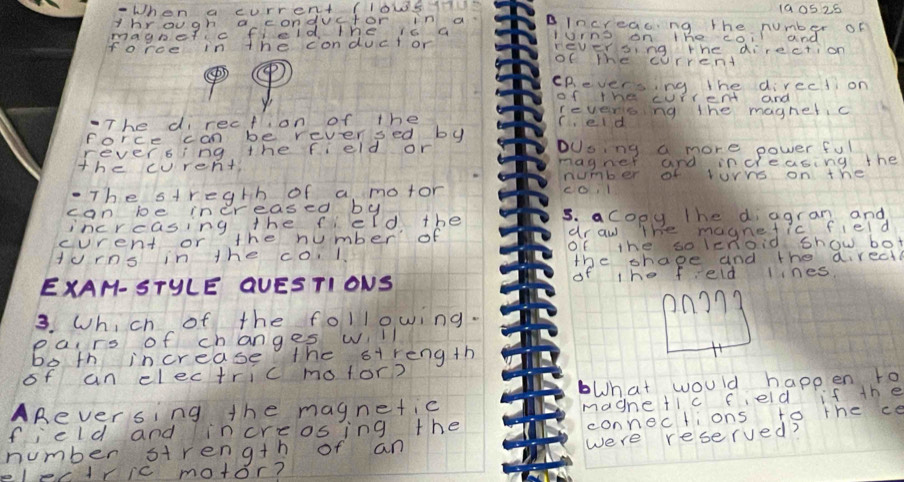 - When a current flows thru
through a conductor in a
magnetic field the is a
force in the conductor
• The direction of the
force can be reversed by
reversing the field or
the curent.
• The stregth of a motor
can be increased by
increasing the field, the
curent or the number of
turns in the coil.
EXAM-STYLE QUESTIONS
3. Which of the following
pairs of changes will
both increase the strength
of an electric motor?
A Reversing the magnetic
field and increasing the
number strength of an
electric motor?
190525
B Increacing the number of
turns on the coil and
reversing the direction
of the current
C Reversing the direction
of the current and
reversing the maghetic
field
D Using a more powerful
magnet and increasing the
number of turns on the
coil
5. a copy the diagran and
draw the magnetic field
of the solenoid show bot
the shape and the directi
of the field lines.
b What would happen to
maghetic field if the
connections to the ce
were reserved?